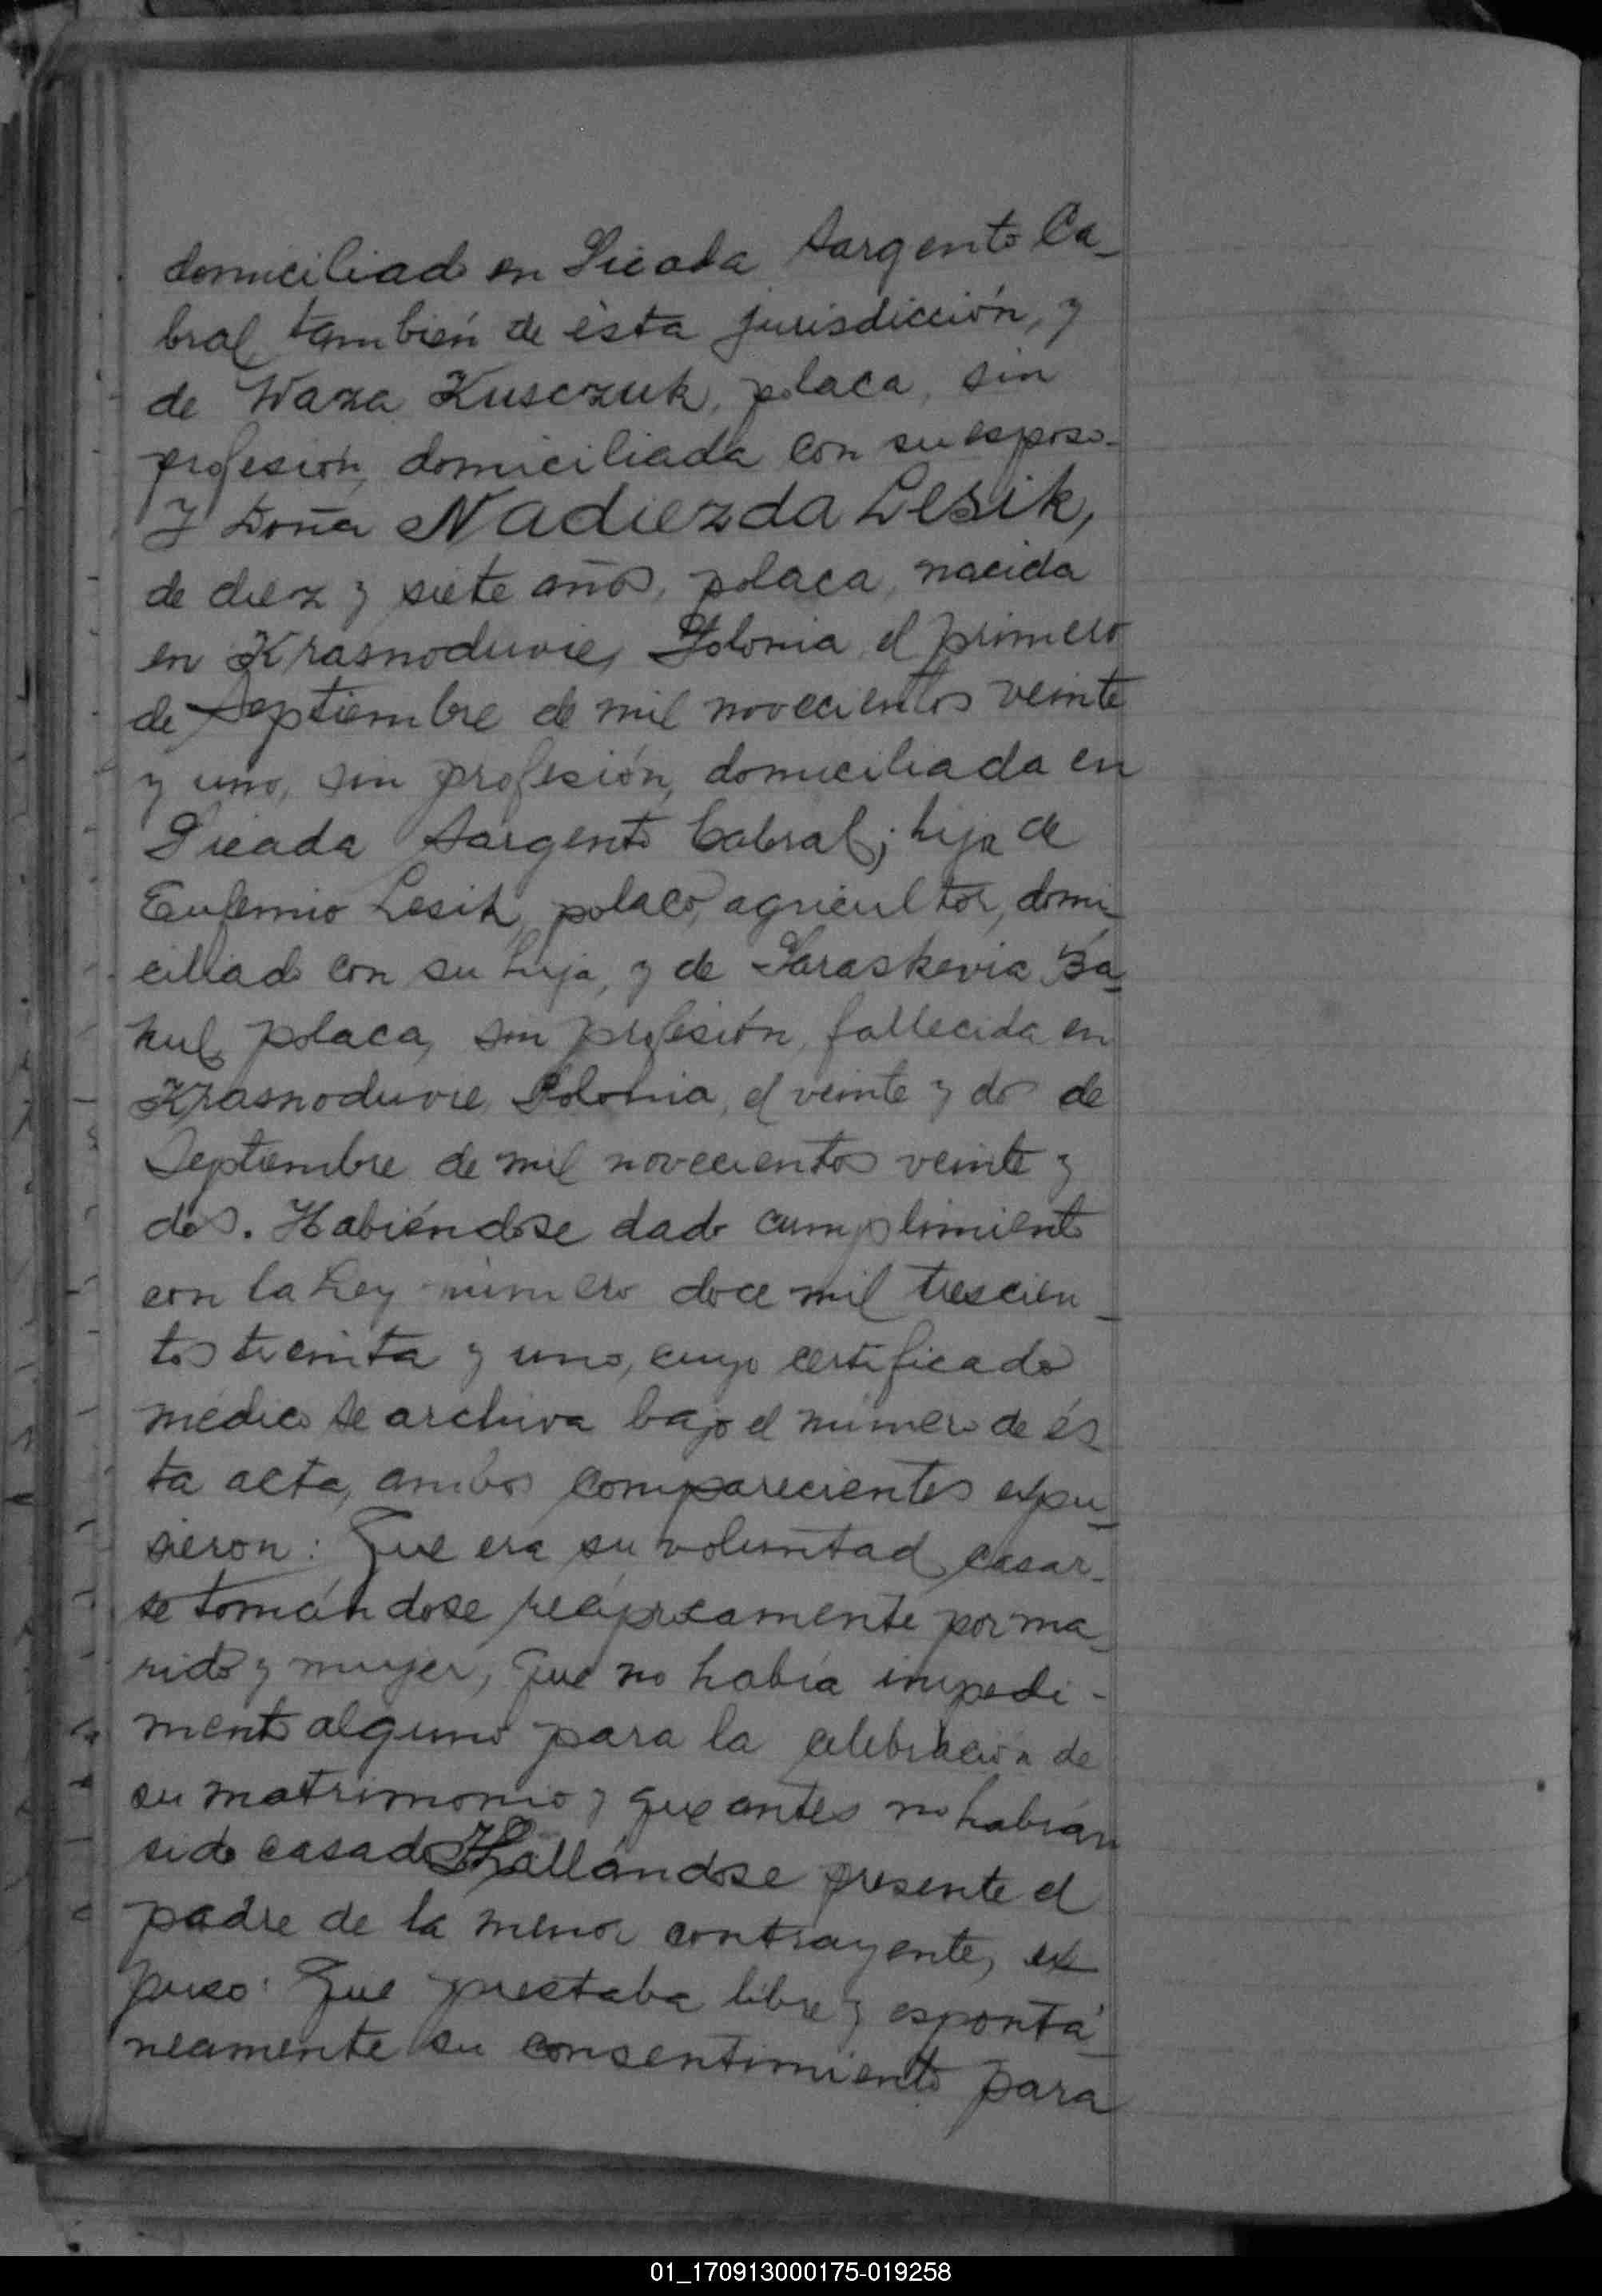 domiciliado en Picada Sargento Ca-
bral, también de ésta jurisdicción, y
de Waza Kusczuk, polaca, sin
profesión, domiciliada con su esposo.
Y Doña Nadiezda Lesik,
de diez y siete años, polaca, nacida
en Krasnoduvie, Polonia el primero
de Septiembre de mil novecientos veinte
y uno, sin profesión, domiciliada en
Picada Sargento Cabral; hija de
Eufemio Lesik, polaco, agricultor, domi-
ciliado con su hija, y de Paraskevia Ba-
kul, polaca, sin profesión, fallecida en
Krasnoduvie Polonia, el veinte y dos de
Septiembre de mil novecientos veinte y
dos. Habiéndose dado cumplimiento
con la Ley número doce mil trescien-
tos treinta y uno, cuyo certificado
médico se archiva bajo el número de és-
ta acta, ambos comparecientes expu-
sieron: Que era su voluntad casar-
se tomándose recíprocamente por ma-
rido y mujer, que no había impedi-
mento alguno para la celebración de
su matrimonio y que antes no habían
sido casados. Hallándose presente el
padre de la menor contrayente, ex-
puso: Que prestaba libre y espontá-
neamente su consentimiento para
01_170913000175-019258